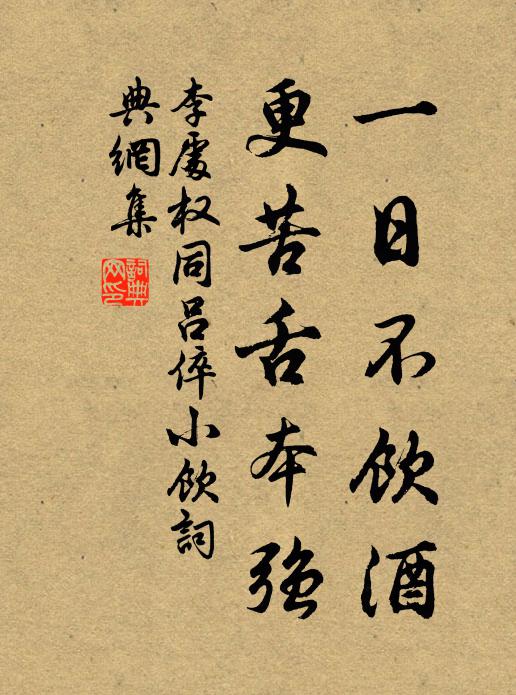 一日不飲酒
更苦舌本强
李處权同吕倅小飲詞
典網集
詞典
网印